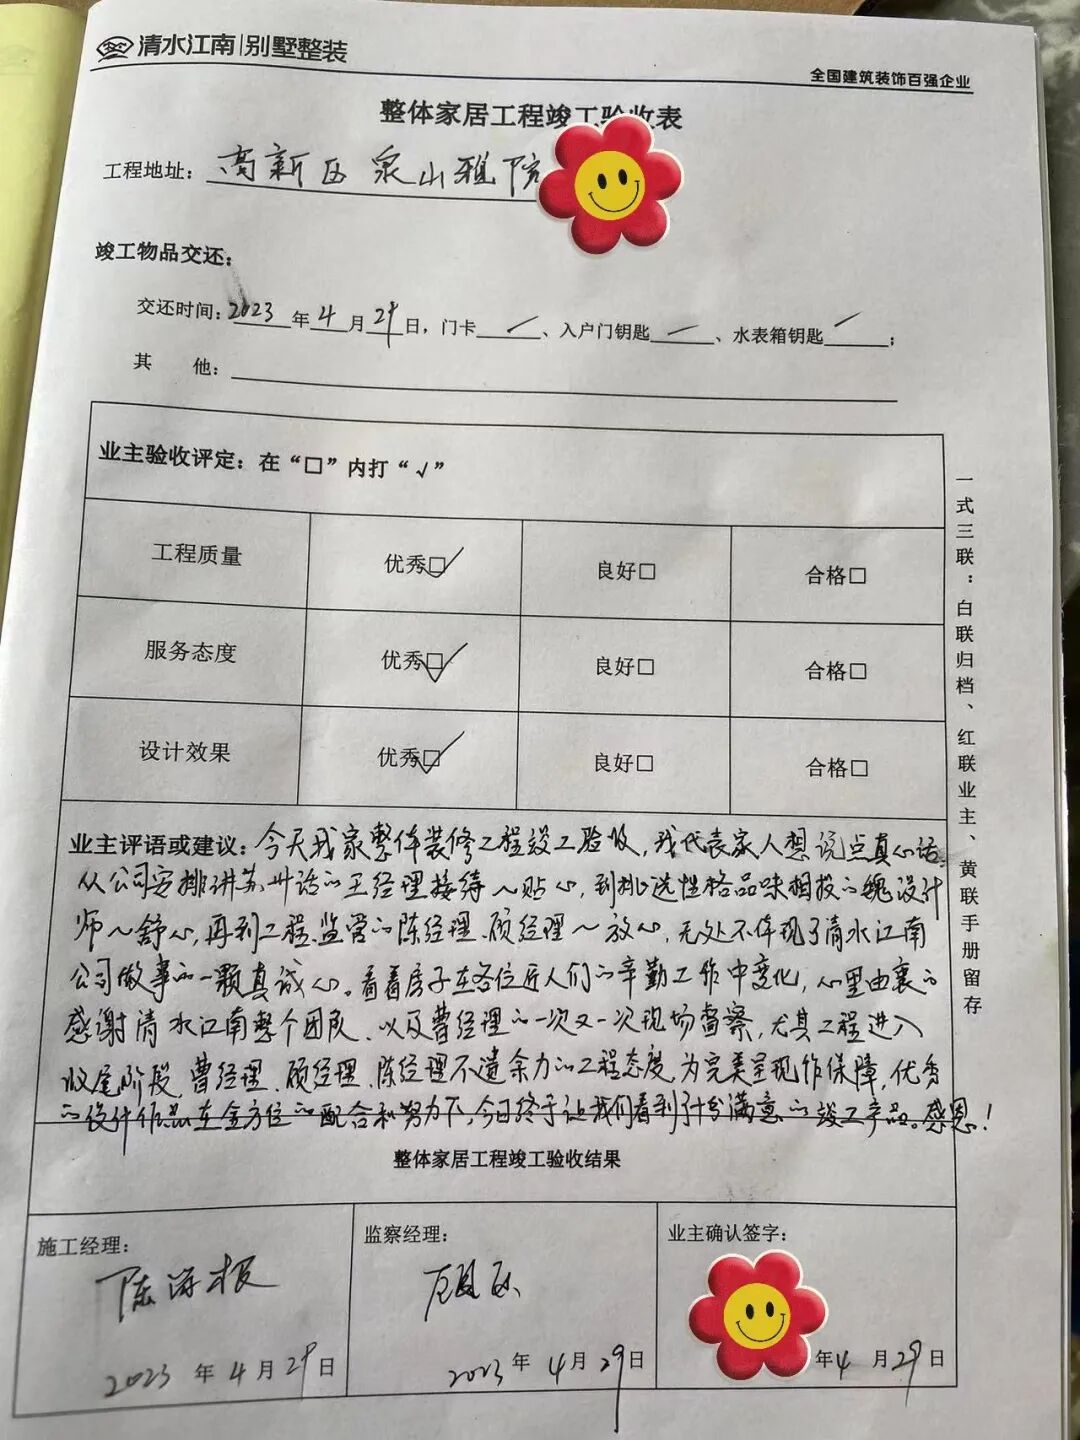 清水江南|别墅整装
全国建筑装饰百强企业
整体家居工程竣工验收表
工程地址：高新区泉山雅院
竣工物品交还：
交还时间：2023年4月29日，门卡／、入户门钥匙／、水表箱钥匙／；
其 他：
业主验收评定：在“□”内打“√”
工程质量 优秀□✓ 良好□ 合格□
服务态度 优秀□✓ 良好□ 合格□
设计效果 优秀□✓ 良好□ 合格□
一式三联：白联归档、红联业主、黄联手册留存
业主评语或建议：今天我家整体装修工程竣工验收，我代表家人想说点真心话。
从公司安排讲苏州话的王经理接待～贴心，到挑选性格品味相投的魏设计
师～舒心，再到工程.监管的陈经理.顾经理～放心，无处不体现了清水江南
公司做事的一颗真诚心。看着房子在各位匠人们的辛勤工作中变化，心里由衷的
感谢清水江南整个团队.以及曹经理的一次又一次现场督察，尤其工程进入
收尾阶段，曹经理.顾经理.陈经理不遗余力的工程态度，为完美呈现作保障，优秀
的设计作品在全方位的配合和努力下，今日终于让我们看到十分满意的竣工产品。感恩！
整体家居工程竣工验收结果
施工经理： 监察经理： 业主确认签字：
陈海根
2023年4月29日 2023年4月29日 年4月29日